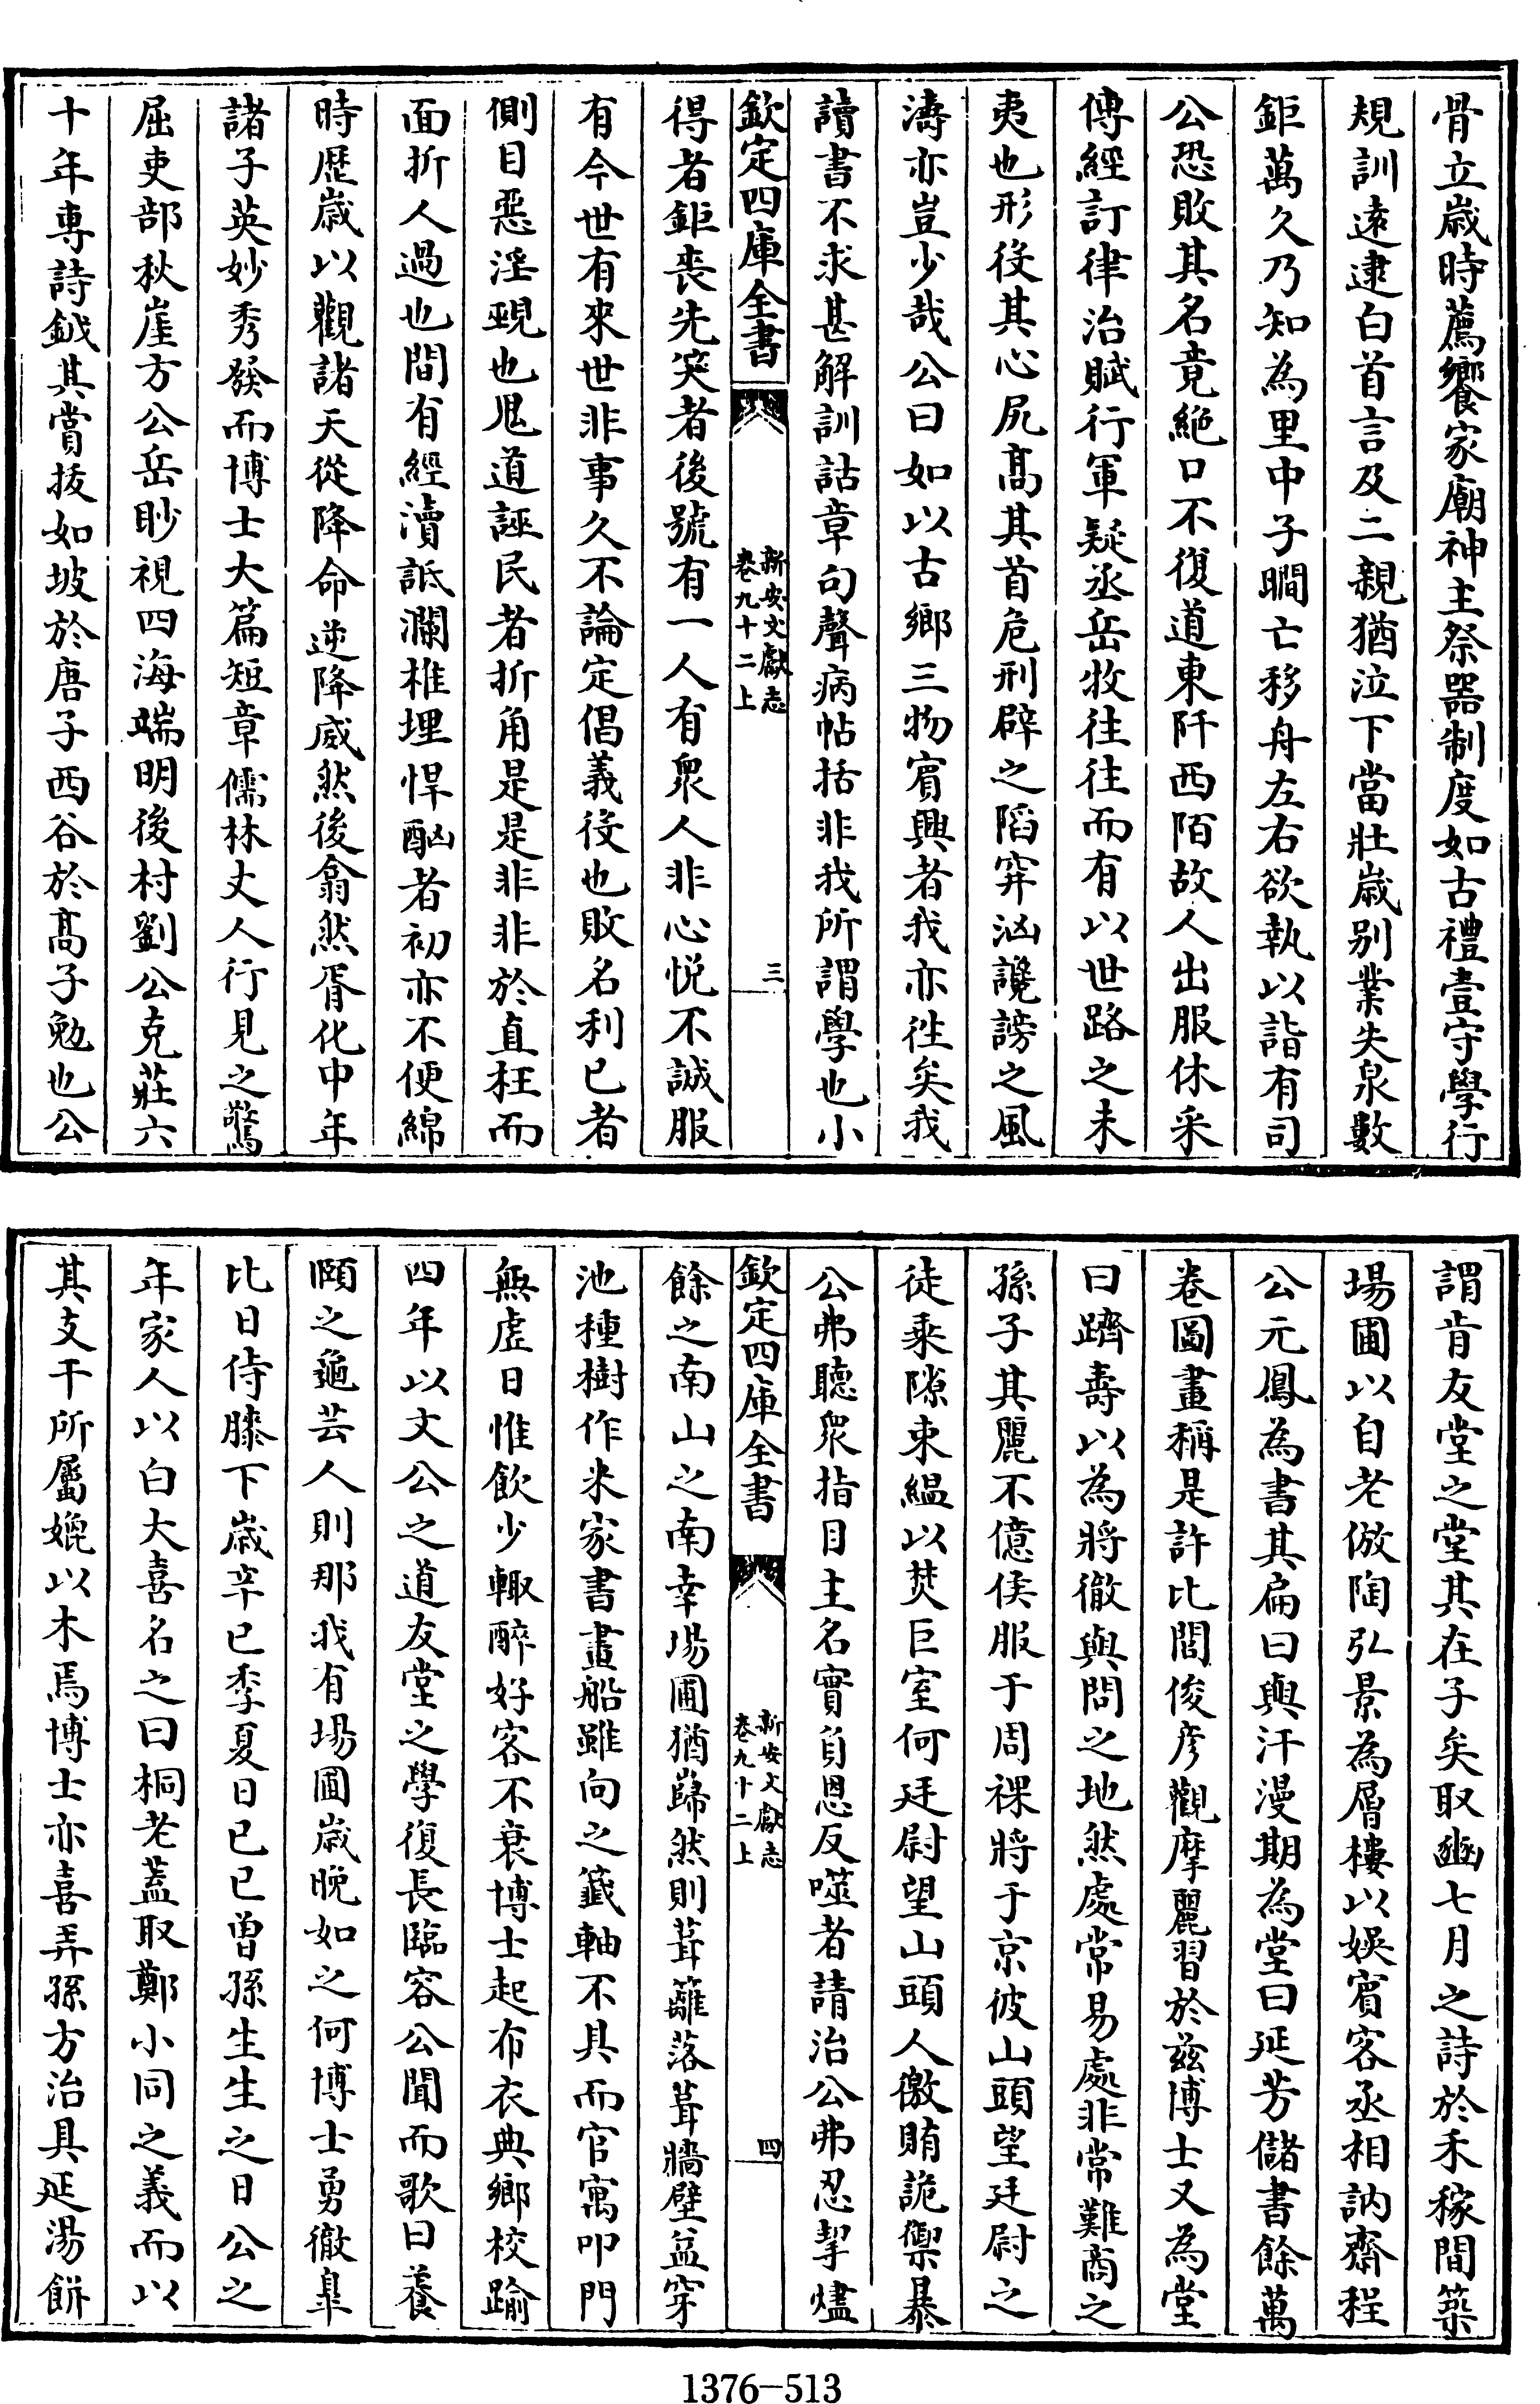 骨立歳時薦饗家廟神主祭器制度如古禮壹守學行
規訓遠逮白首言及二親猶泣下當壯歳别業失泉數
鉅萬久乃知為里中子瞯亡移舟左右欲執以詣有司
公恐敗其名竟絶口不復道東阡西陌故人出服休采
傅經訂律治賦行軍疑丞岳牧往往而有以世路之未
夷也形役其心尻髙其首危刑辟之䧟穽汹讒謗之風
濤亦豈少哉公曰如以古鄉三物賓興者我亦徃矣我
讀書不求甚解訓詁章句聲病帖括非我所謂學也小
欽定四庫全書
新安文獻志
卷九十二上
三
得者鉅喪先笑者後號有一人有衆人非心悦不誠服
有今世有來世非事久不論定倡義役也敗名利已者
側目惡淫覡也鬼道誣民者折角是是非非於直枉而
面折人過也間有經瀆詆瀾椎埋悍酗者初亦不便綿
時歴歳以觀諸天從降命逆降威然後翕然胥化中年
諸子英妙秀發而博士大篇短章儒林丈人行見之驚
屈吏部秋崖方公岳眇視四海端明後村劉公克莊六
十年専詩鉞其賞拔如坡於唐子西谷於髙子勉也公
謂肯友堂之堂其在子矣取豳七月之詩於禾稼間築
場圃以自老倣陶弘景為層樓以娱賓客丞相訥齋程
公元鳳為書其扁曰與汗漫期為堂曰延芳儲書餘萬
卷圖畫稱是許比閭俊彦觀摩麗習於兹博士又為堂
曰躋壽以為將徹與問之地然處常易處非常難商之
孫子其麗不億侯服于周祼將于京彼山頭望廷尉之
徒乘隙束緼以焚巨室何廷尉望山頭人徼賄詭禦暴
公弗聽衆指目主名實負恩反噬者請治公弗忍挈燼
欽定四庫全書
新安文獻志
卷九十二上
四
餘之南山之南幸場圃猶巋然則葺籬落葺牆壁盆穿
池種樹作米家書畫船雖向之籖軸不具而官寓叩門
無虚日惟飲少輙醉好客不衰博士起布衣典鄉校踰
四年以文公之道友堂之學復長臨容公聞而歌曰養
頥之龜芸人則那我有場圃歳晚如之何博士勇徹臯
比日侍膝下歳辛已季夏日已已曽孫生生之日公之
年家人以白大喜名之曰桐老蓋取鄭小同之義而以
其支干所屬媲以木焉博士亦喜弄孫方治具延湯餅
1376-513